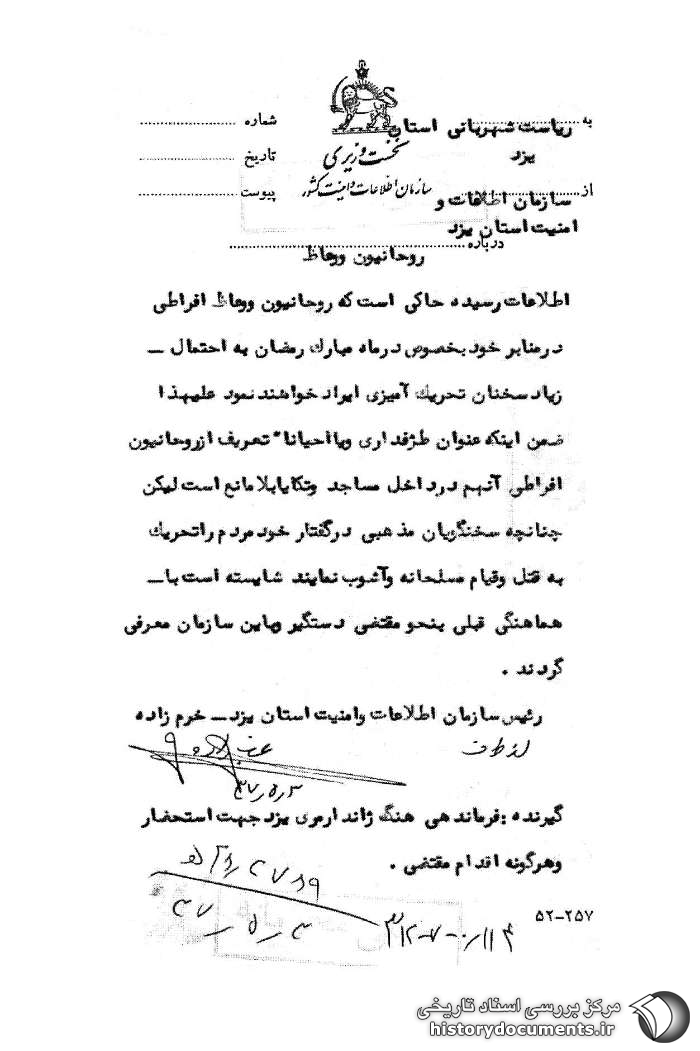 به ریاست شهربانی استان یزد شماره
نخست وزیری تاریخ
از سازمان اطلاعات و امنیت استان یزد سازمان اطلاعات و امنیت کشور پیوست
درباره روحانیون ووعاظ
اطلاعات رسیده حاکی است که روحانیون ووعاظ افراطی
درمنابر خود بخصوص درماه مبارک رمضان به احتمال ـ
زیاد سخنان تحریک آمیزی ایراد خواهند نمود علیهذا
ضمن اینکه عنوان طرفداری ویا احیانا" تعریف ازروحانیون
افراطی آنهم درداخل مساجد وتکایا بلامانع است لیکن
چنانچه سخنگویان مذهبی درگفتار خود مردم راتحریک
به قتل وقیام مسلحانه وآشوب نمایند شایسته است با ـ
هماهنگی قبلی بنحو مقتضی دستگیر وباین سازمان معرفی
گردند .
رئیس سازمان اطلاعات وامنیت استان یزد ـ خرم زاده
از طرف
۳۷/۵/۳
گیرنده : فرماندهی هنگ ژاندارمری یزد جهت استحضار
وهرگونه اقدام مقتضی .
۳۷/۵/۳
۵۲-۲۵۷
مرکز بررسی اسناد تاریخی
historydocuments.ir